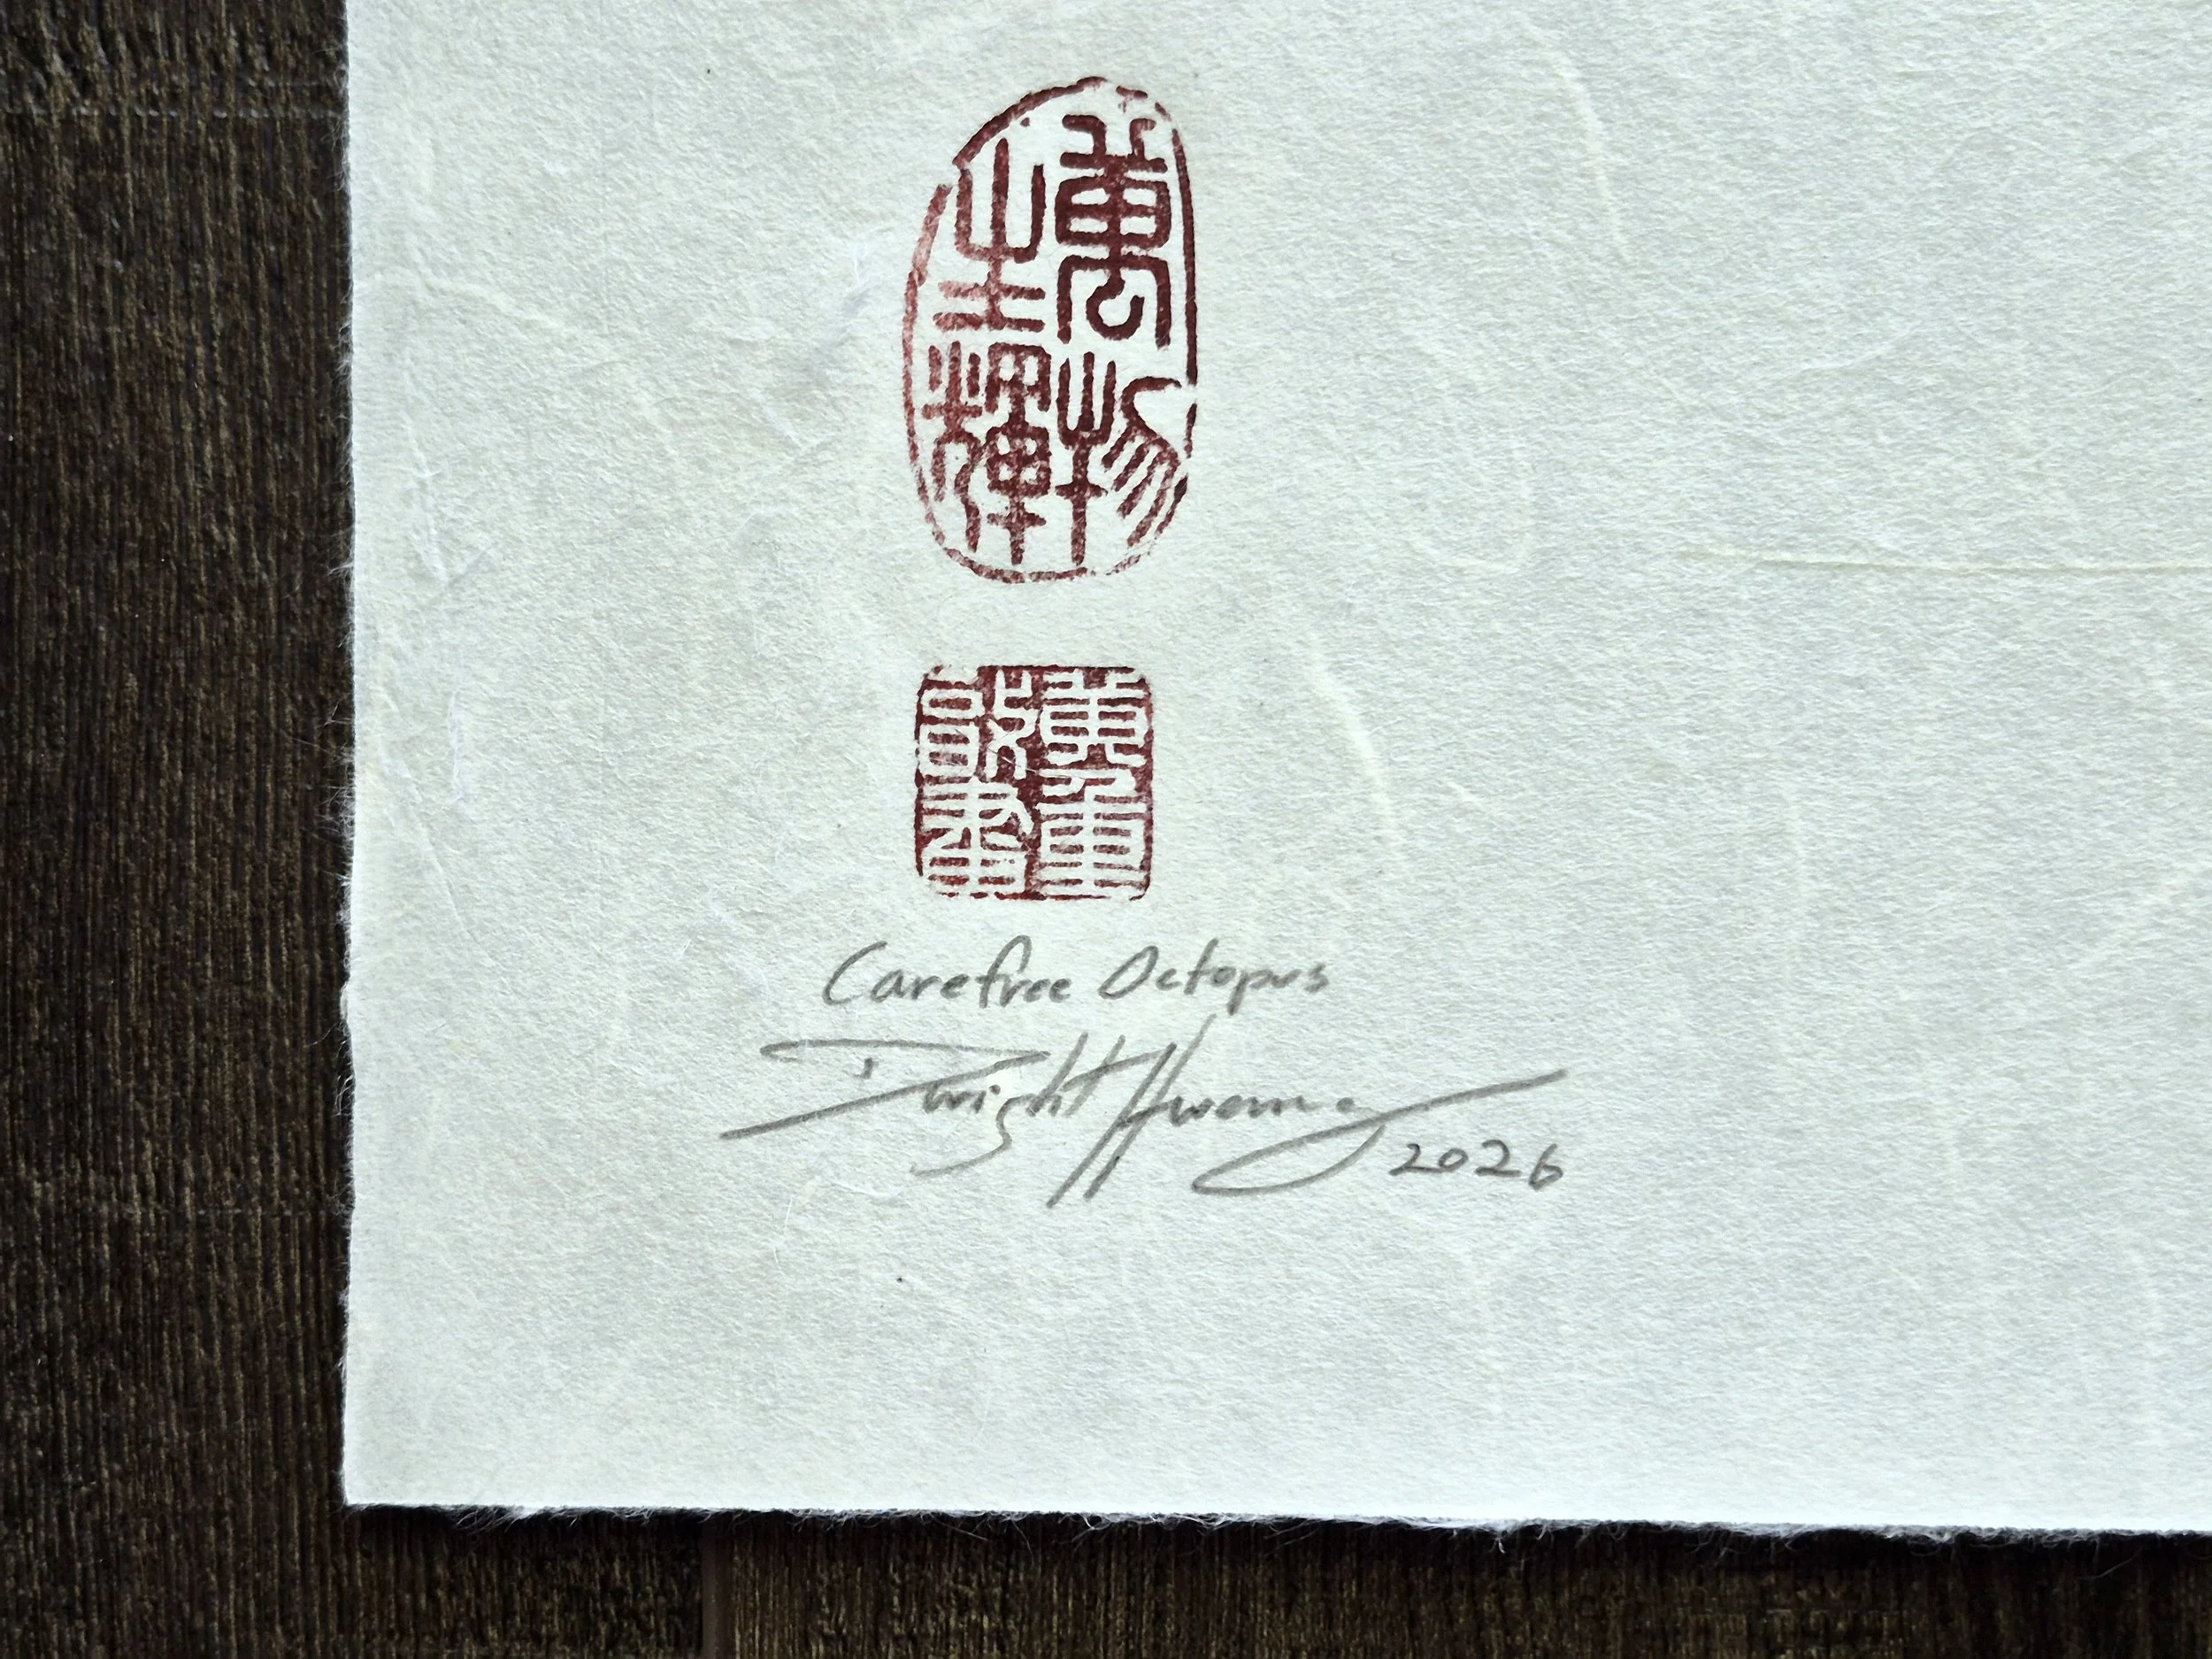 萬物
生輝
Carefree Octopus
Dwight Hwang
2026